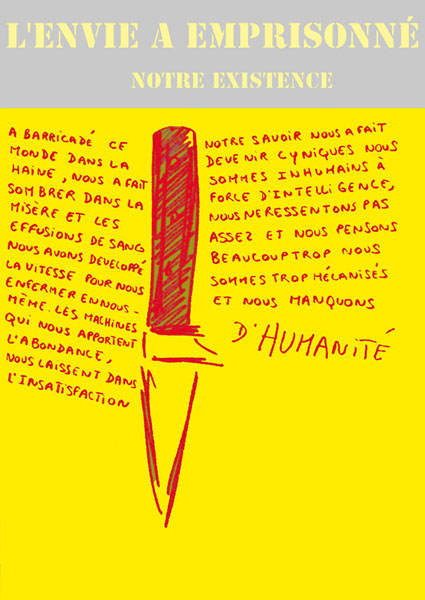 L'ENVIE A EMPRISONNÉ
NOTRE EXISTENCE
A BARRICADÉ CE
MONDE DANS LA
HAINE, NOUS A FAIT
SOMBRER DANS LA
MISÈRE ET LES
EFFUSIONS DE SANG
NOUS AVONS DEVELOPPÉ
LA VITESSE POUR NOUS
ENFERMER EN NOUS-
MÊME. LES MACHINES
QUI NOUS APPORTENT
L'ABONDANCE,
NOUS LAISSENT DANS
L'INSATISFACTION
NOTRE SAVOIR NOUS A FAIT
DEVENIR CYNIQUES NOUS
SOMMES INHUMAINS À
FORCE D'INTELLIGENCE,
NOUS NE RESSENTONS PAS
ASSEZ ET NOUS PENSONS
BEAUCOUP TROP NOUS
SOMMES TROP MÉCANISÉS
ET NOUS MANQUONS
D'HUMANITÉ